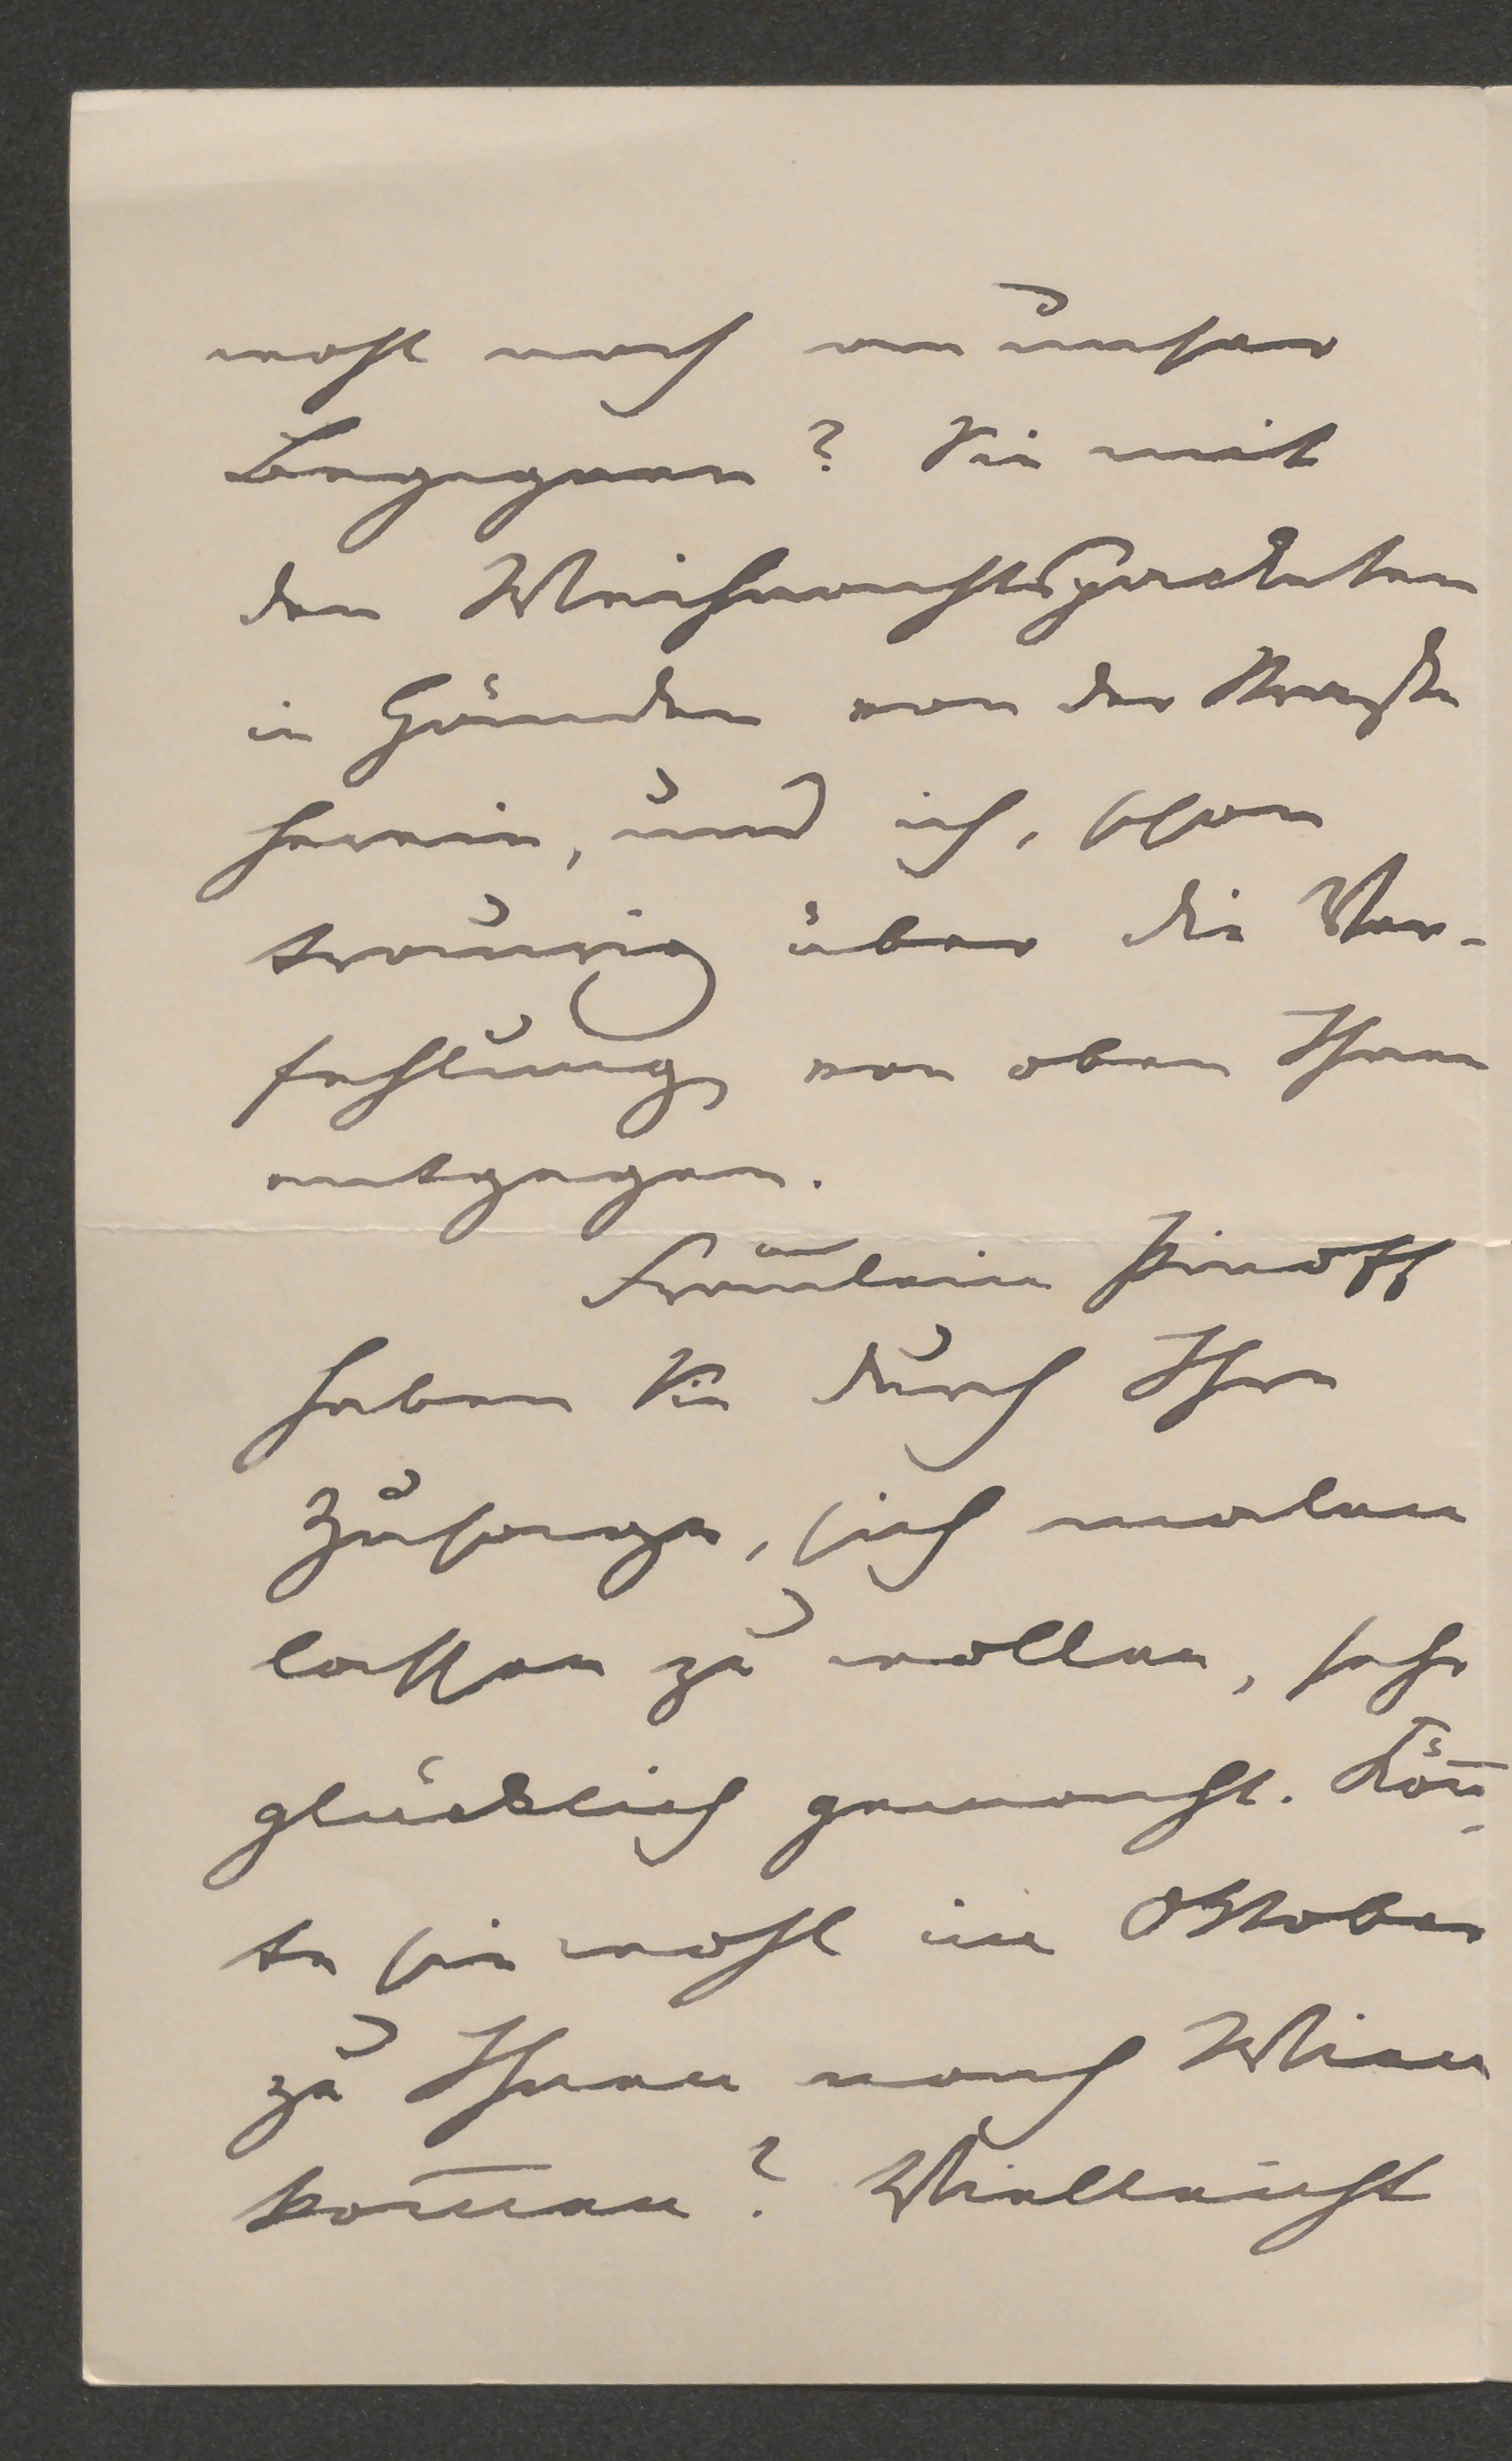 wohl noch an unser
Begegnen? Sie mit
den Weihnachtspacketen
in Händen von der Straße
herein, und ich, schon
traurig über die Ver-
fehlung, von oben Ihnen
entgegen.
Fräulein Pinoff
haben Sie durch Ihre
Zusage, sich malen
lassen zu wollen, sehr
glücklich gemacht. Kön̅-
te sie wohl im Oktober
zu Ihnen nach Wien
kom̅en? Vielleicht